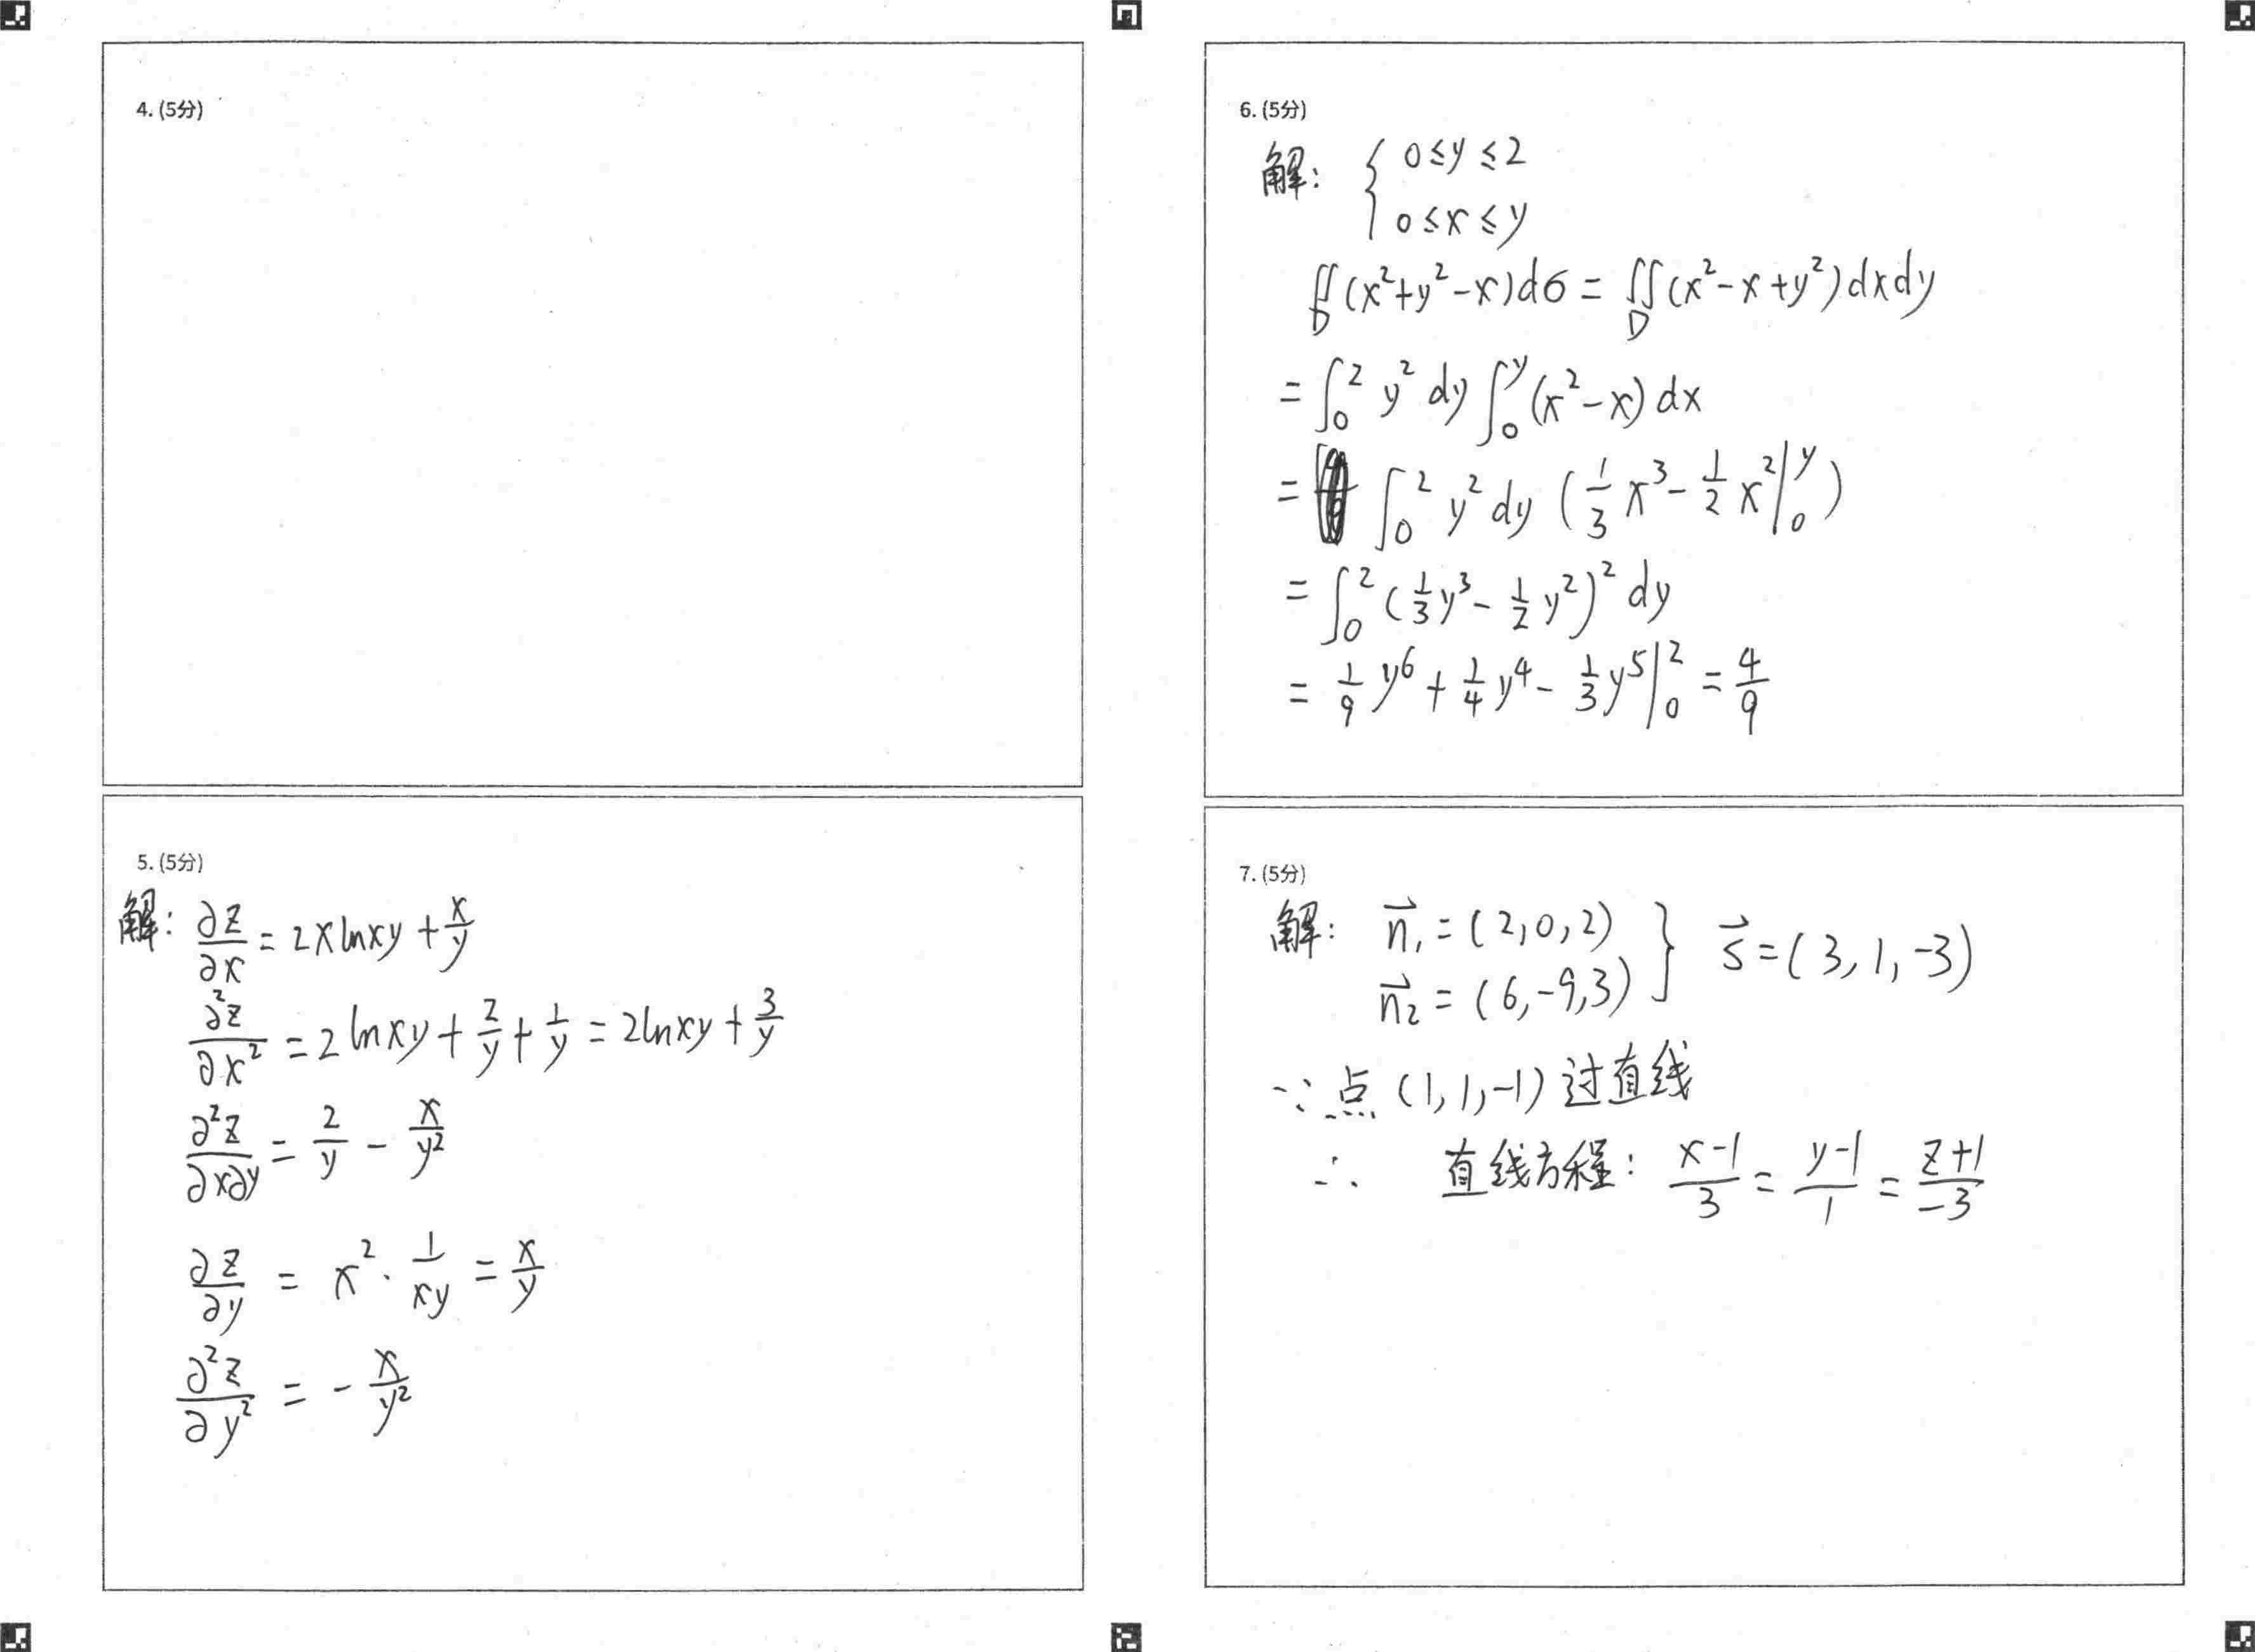 4. (5分)
5. (5分)
解: ∂z/∂x = 2xlnxy + x/y
∂²z/∂x² = 2lnxy + 2/y + 1/y = 2lnxy + 3/y
∂²z/∂x∂y = 2/y - x/y²
∂z/∂y = x² · 1/xy = x/y
∂²z/∂y² = - x/y²
6. (5分)
解: { 0≤y≤2
0≤x≤y
∬_D (x²+y²-x)dσ = ∬_D (x²-x+y²)dxdy
= ∫₀² y² dy ∫₀^y (x²-x) dx
= ∫₀² y² dy (1/3 x³ - 1/2 x² |₀^y)
= ∫₀² (1/3 y³ - 1/2 y²)² dy
= 1/9 y⁶ + 1/4 y⁴ - 1/3 y⁵ |₀² = 4/9
7. (5分)
解: n⃗₁ = (2,0,2) } s⃗ = (3,1,-3)
n⃗₂ = (6,-9,3)
∵ 点 (1,1,-1) 过直线
∴ 直线方程: x-1/3 = y-1/1 = z+1/-3